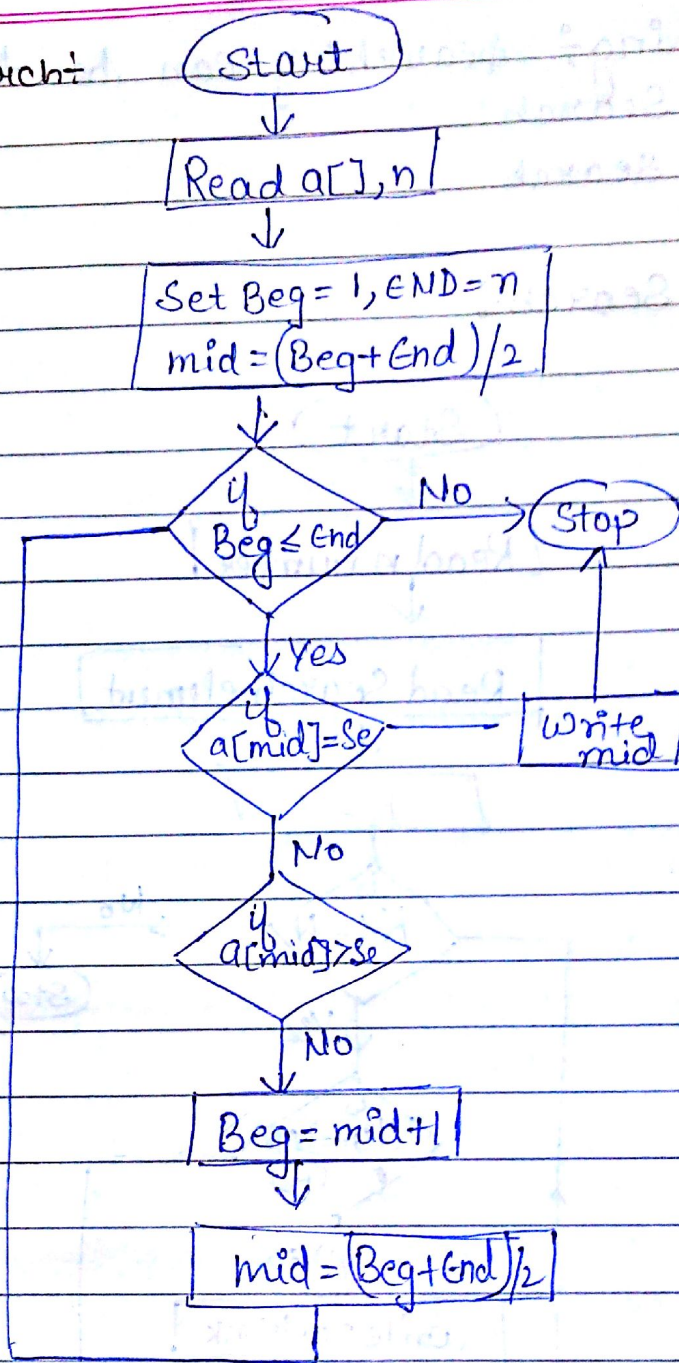 Start
Read a[], n
Set Beg = 1, END = n
mid = (Beg + End)/2
if
Beg ≤ End
No
Stop
Yes
if
a[mid]=Se
Write
mid
No
if
a[mid]>Se
No
Beg = mid+1
mid = (Beg+End)/2